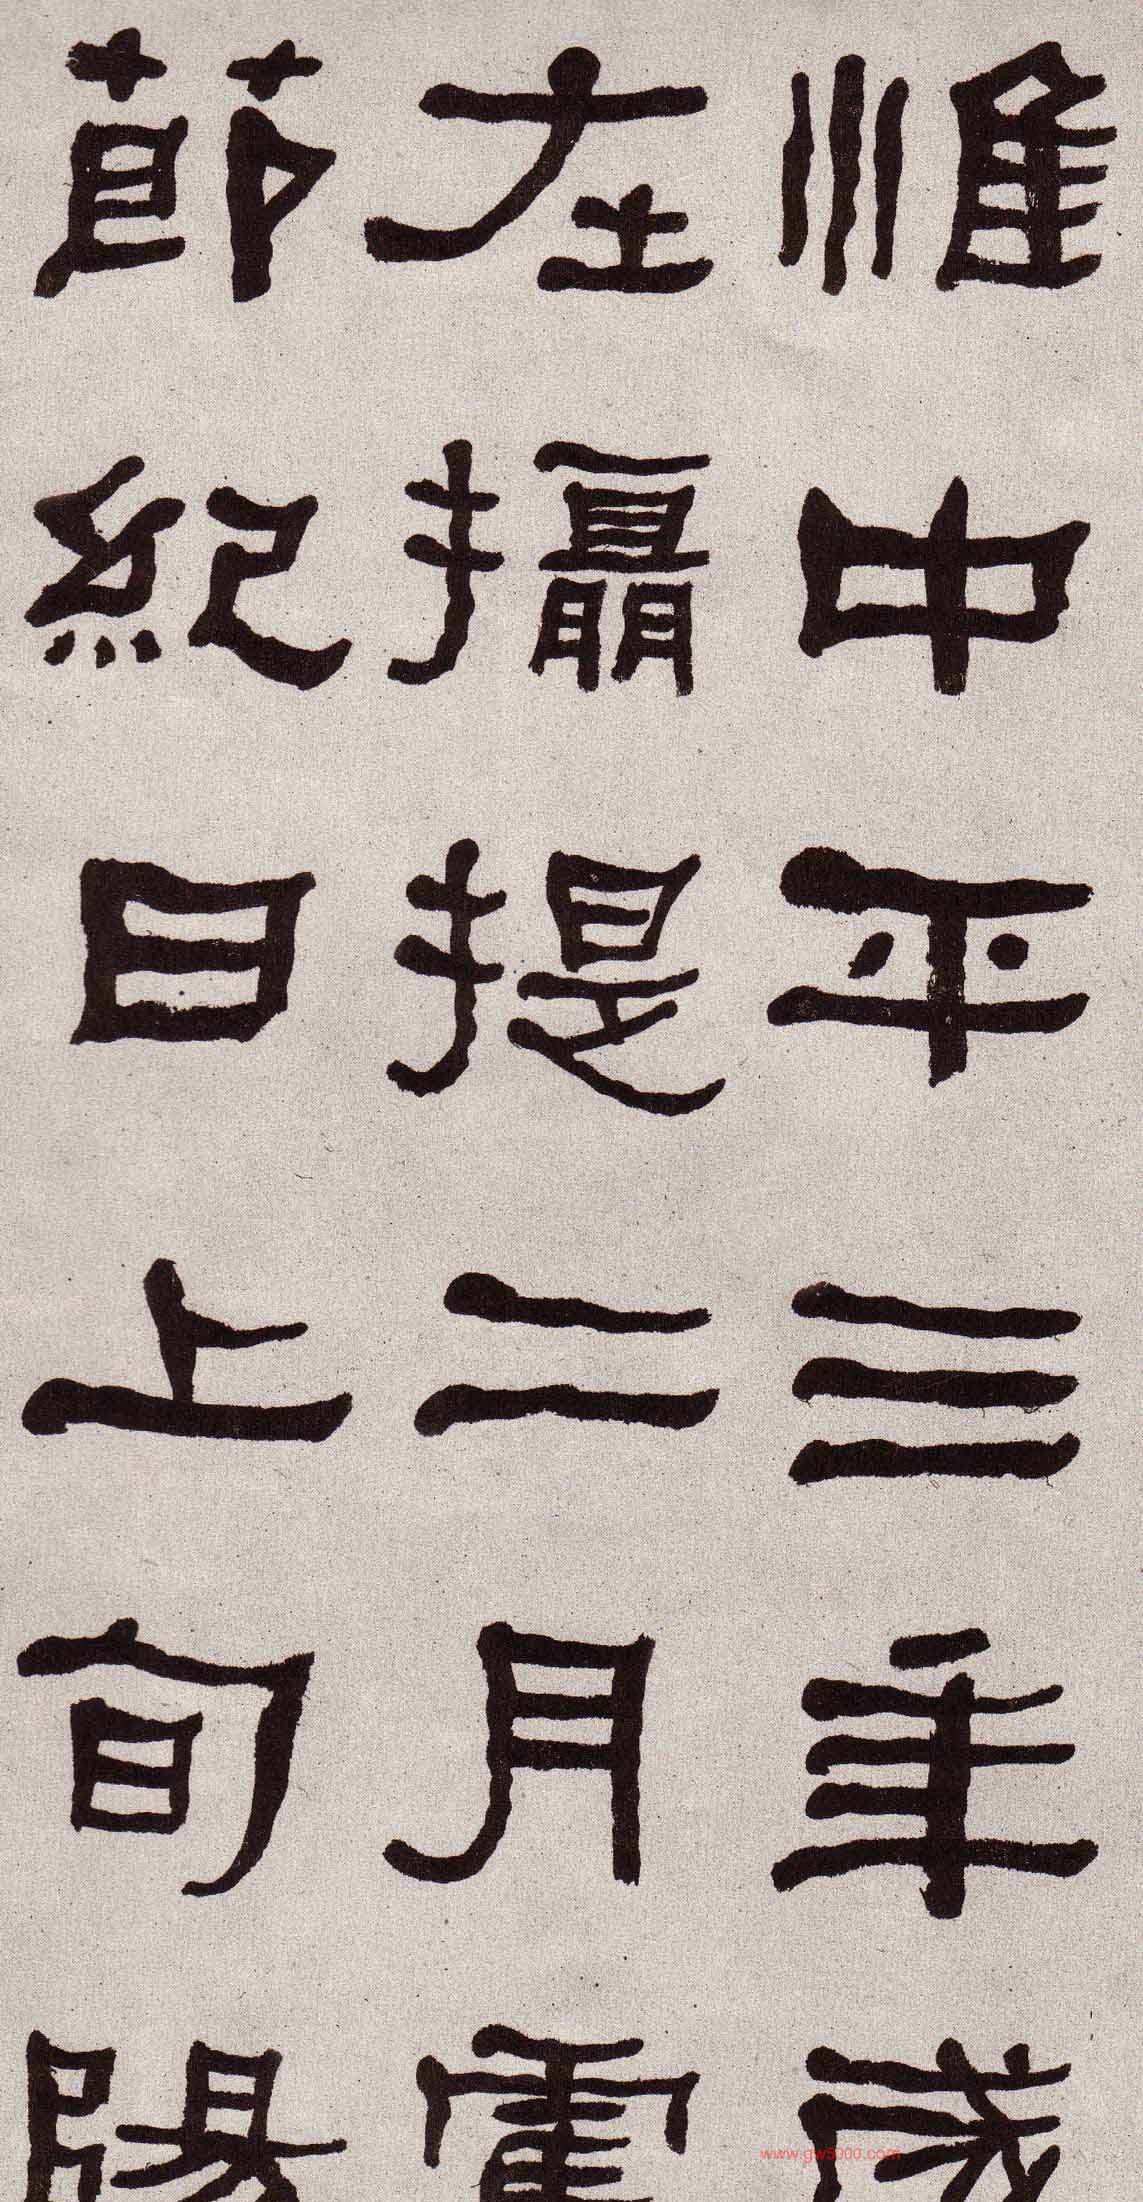 惟中平三年歲
在攝提二月震
節紀日上旬陽
www.gw5000.com